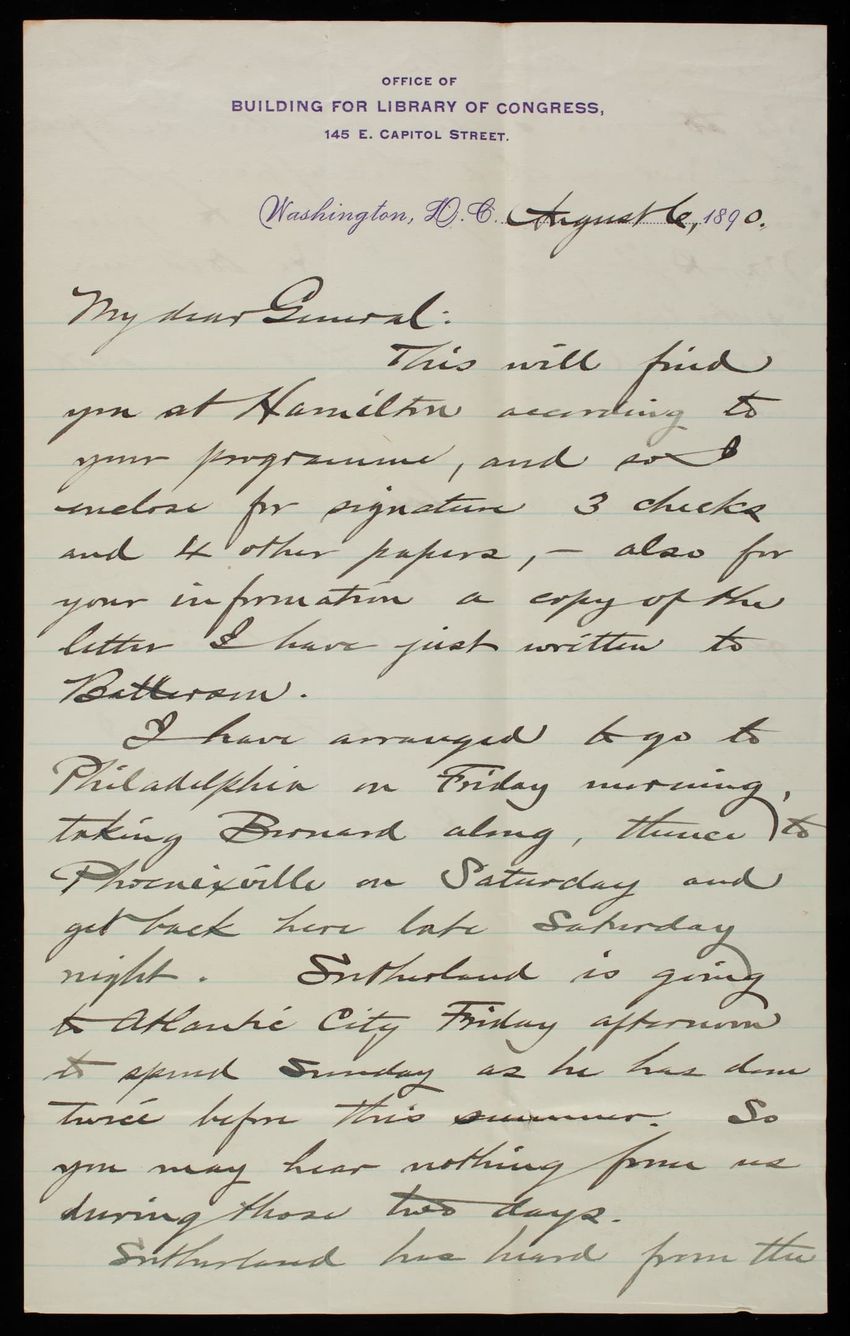 OFFICE OF
BUILDING FOR LIBRARY OF CONGRESS,
145 E. CAPITOL STREET.
Washington, D.C. August 6, 1890.
My dear General:
This will find
you at Hamilton according to
your programme, and so I
enclose for signature 3 checks
and 4 other papers, – also for
your information a copy of the
letter I have just written to
Batterson.
I have arranged to go to
Philadelphia on Friday morning,
taking Bernard along, thence to
Phoenixville on Saturday and
get back here late Saturday
night. Sutherland is going
to Atlantic City Friday afternoon
to spend Sunday as he has done
twice before this summer. So
you may hear nothing from us
during those two days.
Sutherland has heard from the